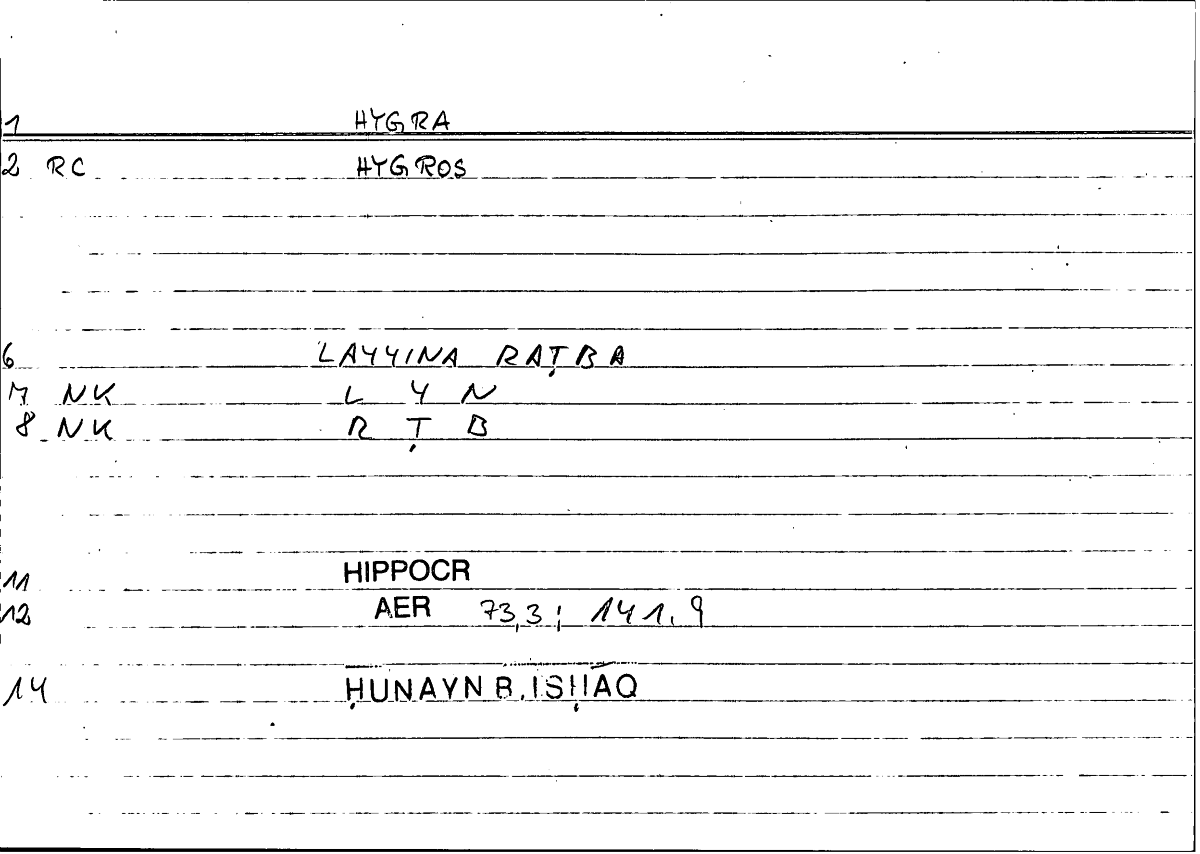 1 HYGRA
2 RC HYGROS
6 LAYYINA RAṬBA
7 NK L Y N
8 NK R Ṭ B
11 HIPPOCR
12 AER 73,3; 141.9
14 ḤUNAYN B. ISḤĀQ